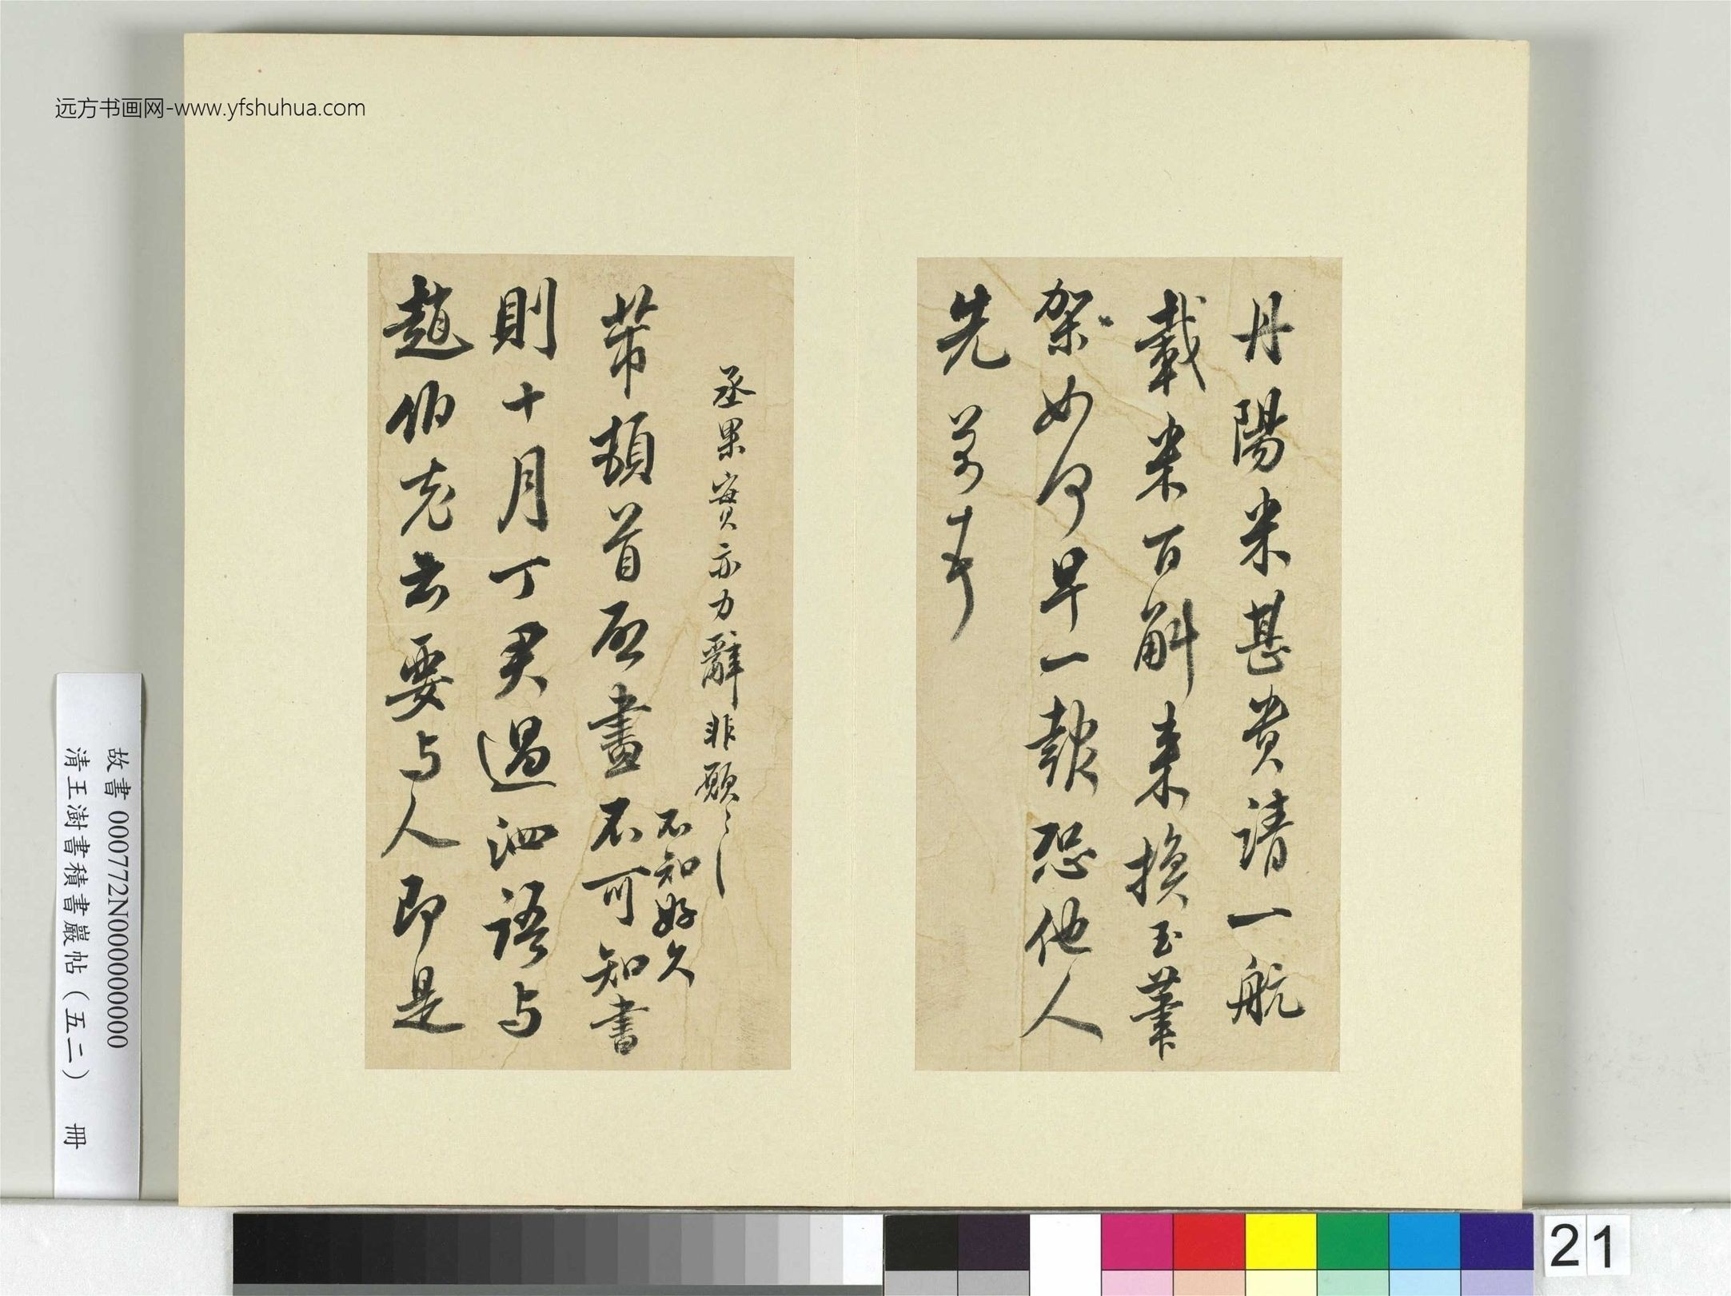 远方书画网-www.yfshuhua.com
丹陽米甚貴請一航
載米百斛來換玉筆
架如何早一報恐他人
先
丞果實亦力辭非願〻
不知好久
芾頓首啟畫不可知書
則十月丁君過泗語与
趙伯充云要与人即是
故書 000772N000000000
清王澍書積書巖帖（五二） 冊
21